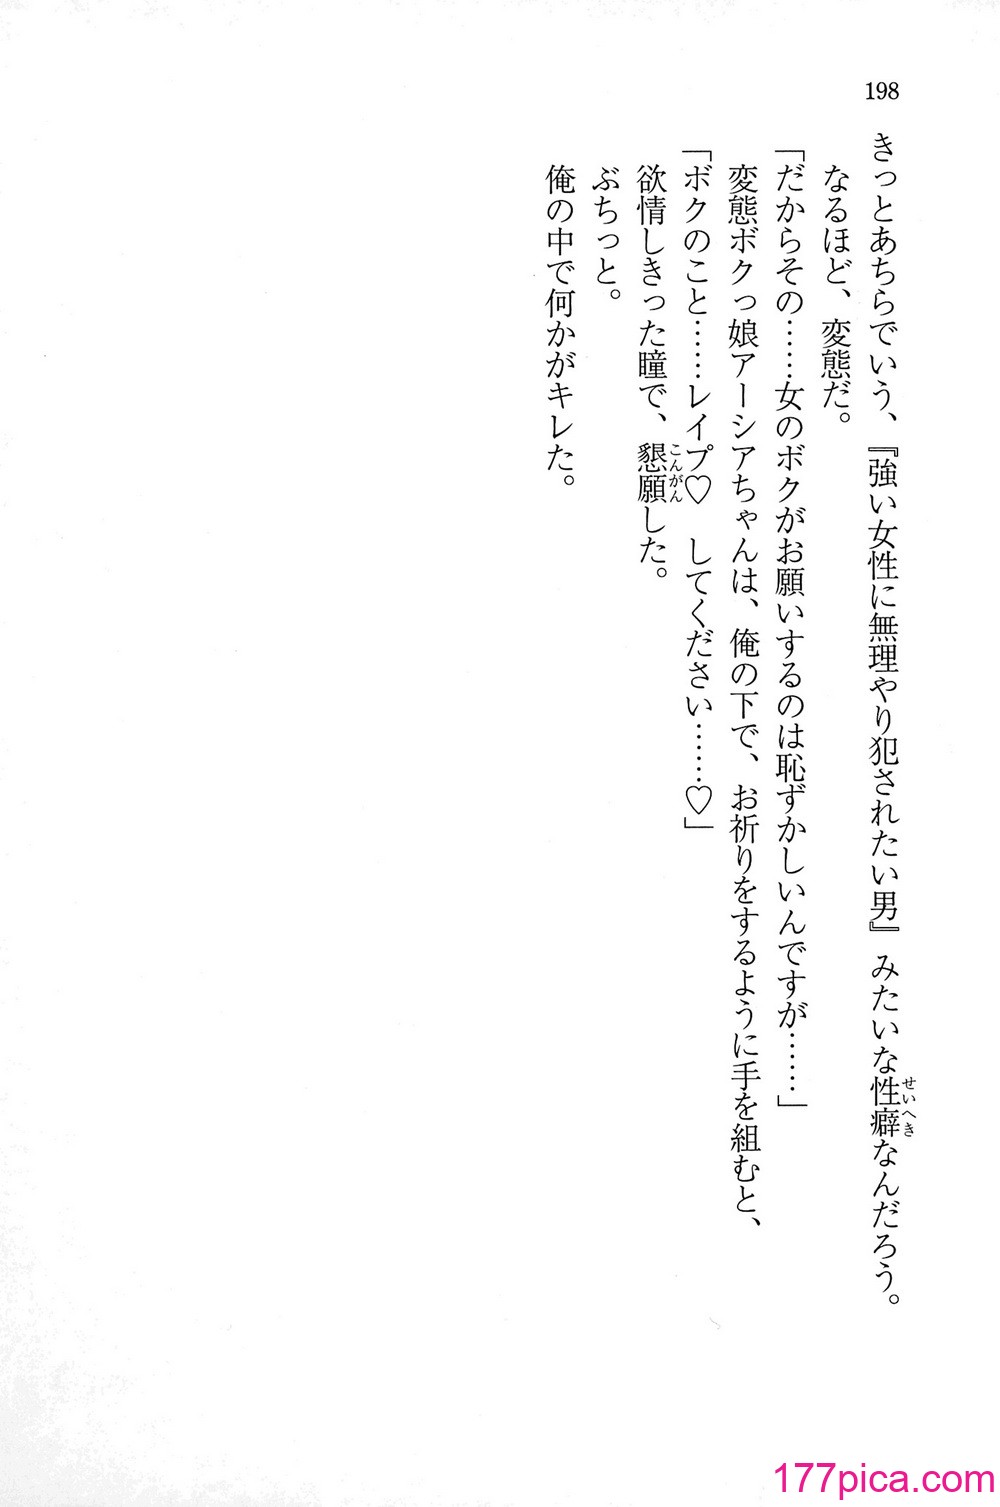 198
きっとあちらでいう、『強い女性に無理やり犯されたい男』みたいな性癖なんだろう。
せいへき
なるほど、変態だ。
「だからその……女のボクがお願いするのは恥ずかしいんですが……」
変態ボクっ娘アーシアちゃんは、俺の下で、お祈りをするように手を組むと、
「ボクのこと……レイプ♡　してください……♡」
欲情しきった瞳で、懇願した。
こんがん
ぶちっと。
俺の中で何かがキレた。
177pica.com